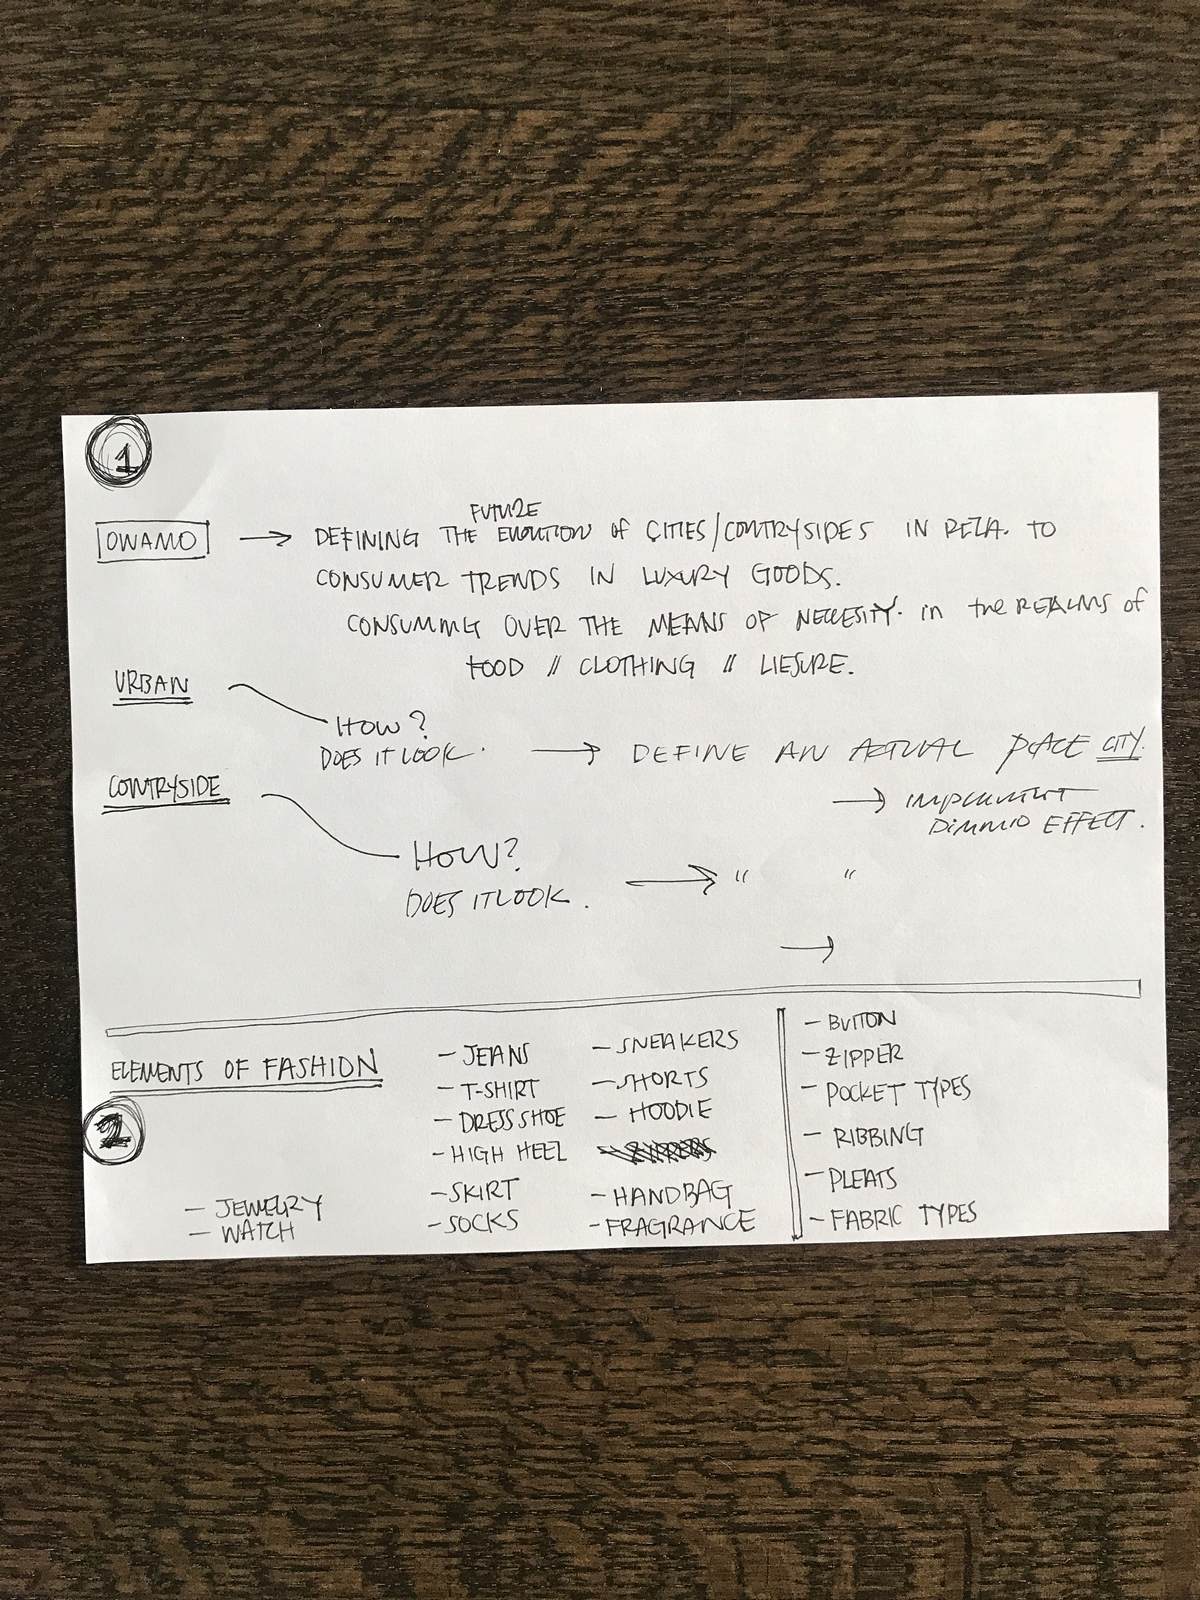 1
FUTURE
OWAMO → DEFINING THE EVOLUTION OF CITIES/CONTRYSIDES IN RELA. TO
CONSUMER TRENDS IN LUXURY GOODS.
CONSUMING OVER THE MEANS OF NECESITY. in the REALMS of
FOOD // CLOTHING // LIESURE.
URBAN
HOW?
DOES IT LOOK. → DEFINE AN ACTUAL PLACE CITY.
COUNTRYSIDE
→ IMPLEMENT
EFFECT.
HOW?
DOES IT LOOK. → " "
→
ELEMENTS OF FASHION
2
- JEWELRY
- WATCH
- JEANS
- T-SHIRT
- DRESS SHOE
- HIGH HEEL
- SKIRT
- SOCKS
- SNEAKERS
- SHORTS
- HOODIE
- HANDBAG
- FRAGRANCE
- BUTTON
- ZIPPER
- POCKET TYPES
- RIBBING
- PLEATS
- FABRIC TYPES